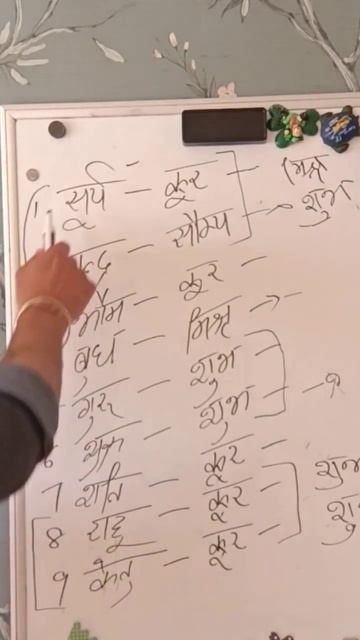 1 सूर्य – क्रूर – मिश्र
चन्द्र – सौम्य – शुभ
भौम – क्रूर –
बुध – मिश्र –
गुरु – शुभ –
6 शुक्र – शुभ –
7 शनि – क्रूर – शुभ
8 राहु – क्रूर –
9 केतु – क्रूर –